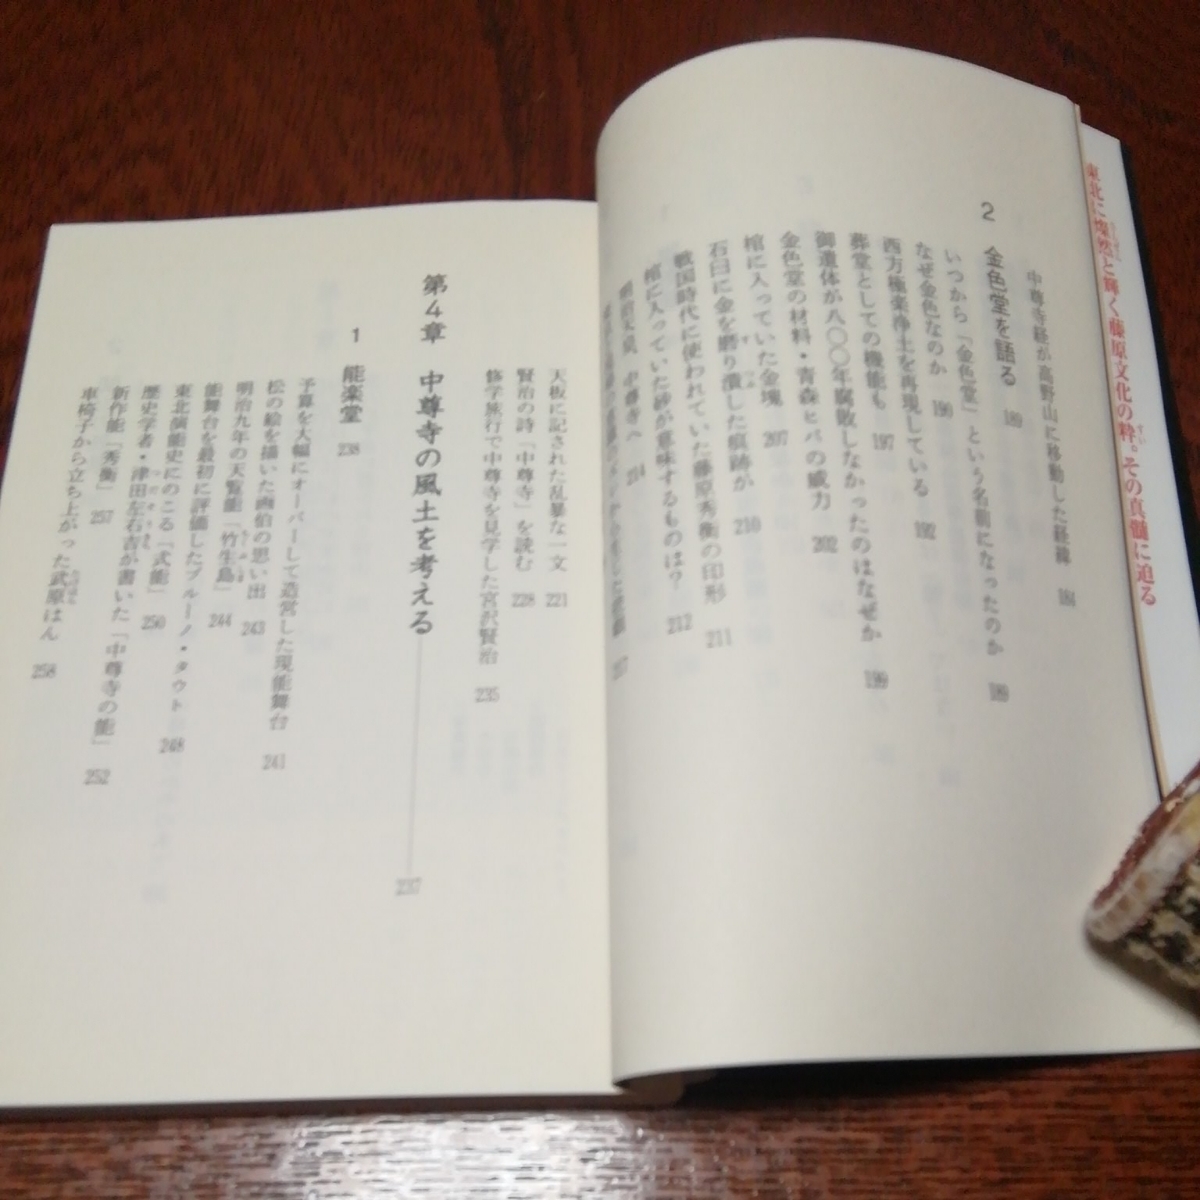 東北に燦然と輝く藤原文化の粋。その真髄に迫る
中尊寺経が高野山に移動した経緯 184
2 金色堂を語る 189
いつから「金色堂」という名前になったのか 189
なぜ金色なのか 190
西方極楽浄土を再現している 192
葬堂としての機能も 197
御遺体が八〇〇年腐敗しなかったのはなぜか 199
金色堂の材料・青森ヒバの威力 202
棺に入っていた金塊 207
石臼に金を磨り潰した痕跡が 210
戦国時代に使われていた藤原秀衡の印形 211
棺に入っていた砂が意味するものは? 212
明治天皇、中尊寺へ 214
217
天板に記された乱暴な一文 221
賢治の詩「中尊寺」を読む 228
修学旅行で中尊寺を見学した宮沢賢治 235
第4章 中尊寺の風土を考える 237
1 能楽堂 238
予算を大幅にオーバーして造営した現能舞台 241
松の絵を描いた画伯の思い出 243
明治九年の天覧能「竹生島」 244
能舞台を最初に評価したブルーノ・タウト 248
東北演能史にのこる「式能」 250
歴史学者・津田左右吉が書いた「中尊寺の能」 252
新作能「秀衡」 257
車椅子から立ち上がった武原はん 258